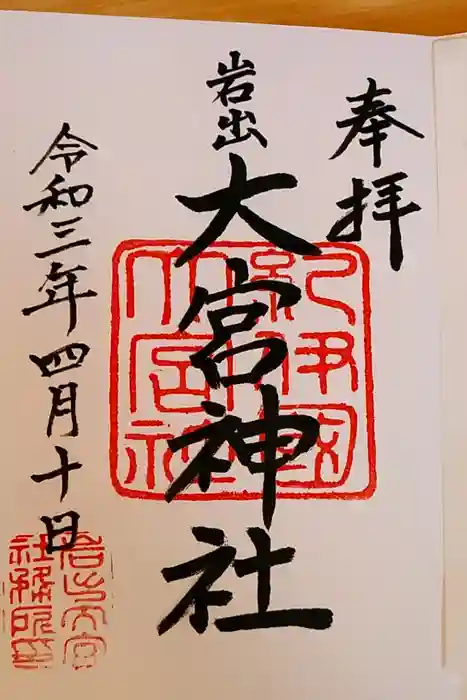 奉拝
岩出
大宮神社
令和三年四月十日
紀伊國
大宮神社
岩出大宮
社務所印